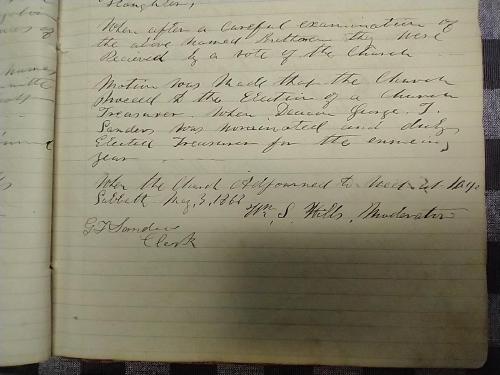 Slaughter,
When after a careful examination of
the above named Brethren they were
Recieved by a vote of the Church
Motion was Made that the Church
proceed to the Election of a Church
Treasurer. When Deacon George. T.
Sanders was nominated and duly
Elected Treasurer for the ensuing
year
When the Church Adjourned to Meet at
Sabbath May, 3, 1868
Wm. S. Hills, Moderator
G T Sanders
Clerk